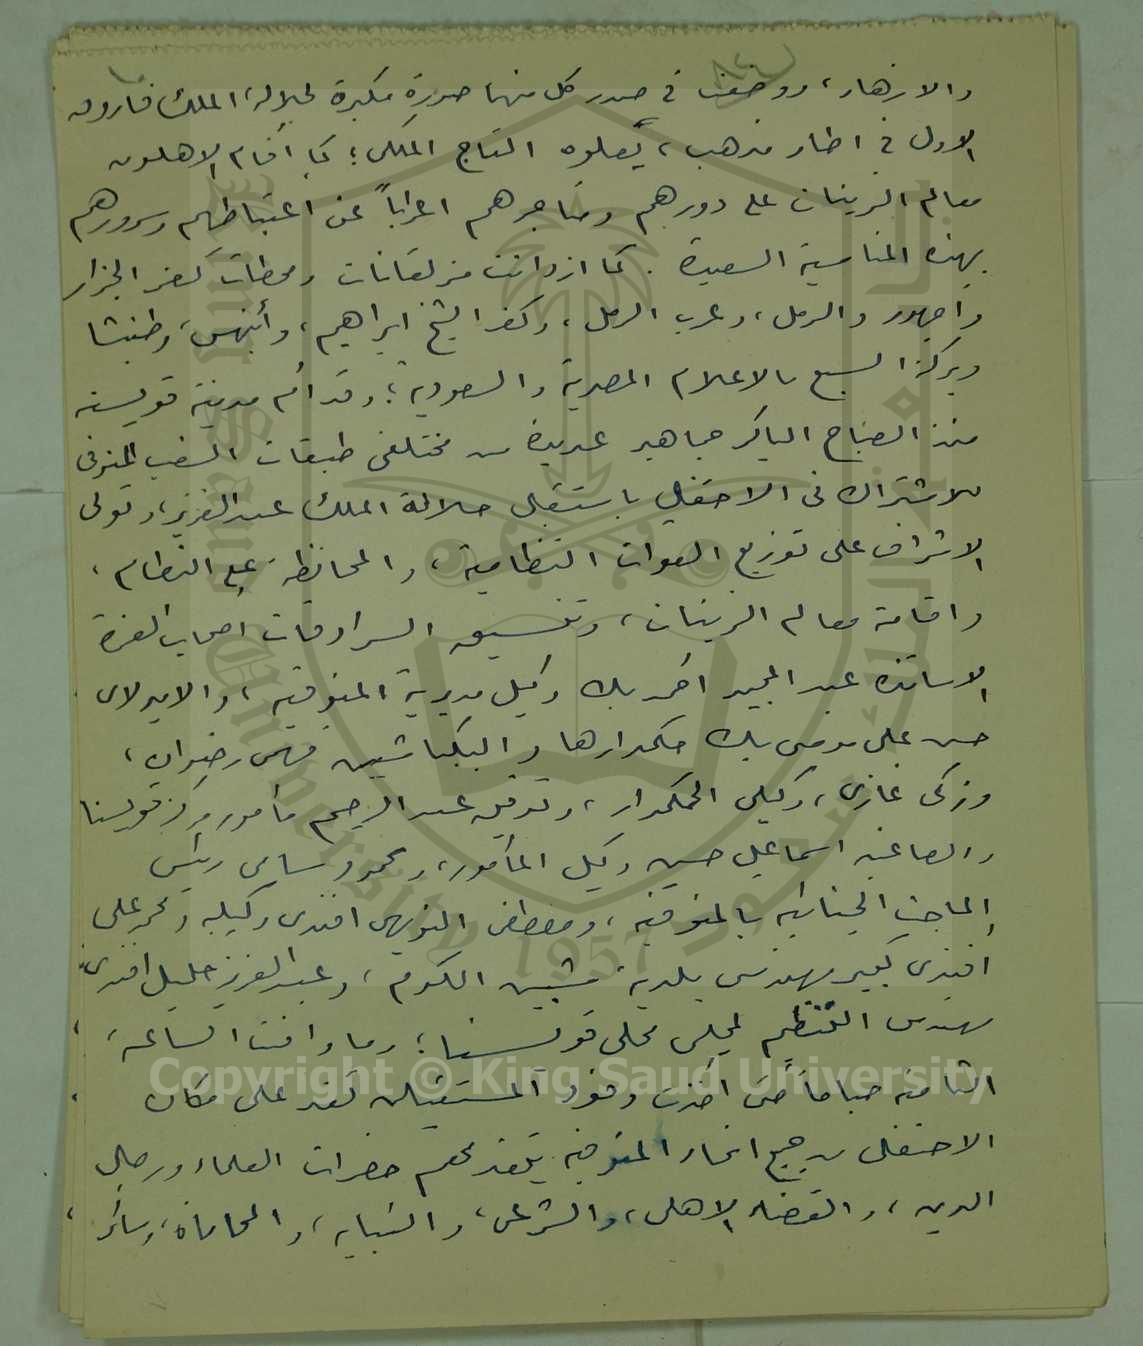 والازهار، ووضعت في صدر كل منها صورة مكبرة لجلالة الملك فاروق
الاول في اطار مذهب، يعلوه التاج الملكى؛ كما أقام الاهلون
معالم الزينات على دورهم ومتاجرهم اعراباً عن اغتباطهم وسرورهم
بهذه المناسبة السعيدة. كما ازدانت مزلقانات ومحطات كفر الجزار
واجهور والرمل، وعرب الرمل، وكفر الشيخ ابراهيم، وأبنهس، وطنبشا
وبركة السبع بالاعلام المصرية والسعودية؛ وقد أم مدينة قويسنه
منذ الصباح الباكر جماهير عديدة من مختلفى طبقات الشعب المنوفى
للاشتراك فى الاحتفال باستقبال جلالة الملك عبد العزيز، وتولى
الاشراف على توزيع القوات النظامية، والمحافظة على النظام،
واقامة معالم الزينات، وتنسيق السرادقات اصحاب العزة
الاساتذه عبد المجيد احمد بك وكيل مديرية المنوفيه، والاميرلاى
حسن على موسى بك حكمدارها والبكباشين فهمى رضوان،
وزكى غازى، وكيلى الحكمدار، وتوفيق عبد الرحيم مأمور مركز قويسنا
والصاغ اسماعيل حسين وكيل المأمور، ومحمود سامى رئيس
المباحث الجنائيه بالمنوفيه، ومصطفى افندى وكيله ومحمد على
افندى كبير مهندسى بلدية شبين الكوم، وعبد العزيز خليل افندى
مهندس التنظيم لمجلس محلى قويسنا؛ وما وافت الساعة
الثامنه صباحاً حتى أخذت وفود المستقبلين تفد على مكان
الاحتفال من جميع انحاء المنوفيه يتقدمهم حضرات العلماء ورجال
الدين، والقضاء الاهلى، والشرعى، والنيابه، والمحاماة، وسائر
Copyright © King Saud University
King Saud University
1957
جامعة الملك سعود